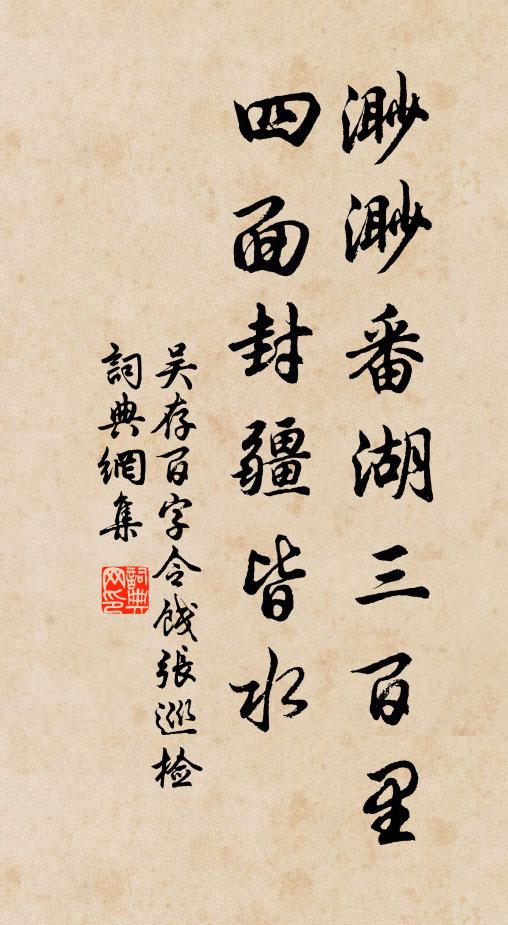 渺渺番湖三百里
四面封疆皆水
吴存百字令餞張巡檢
詞典網集
詞典网印